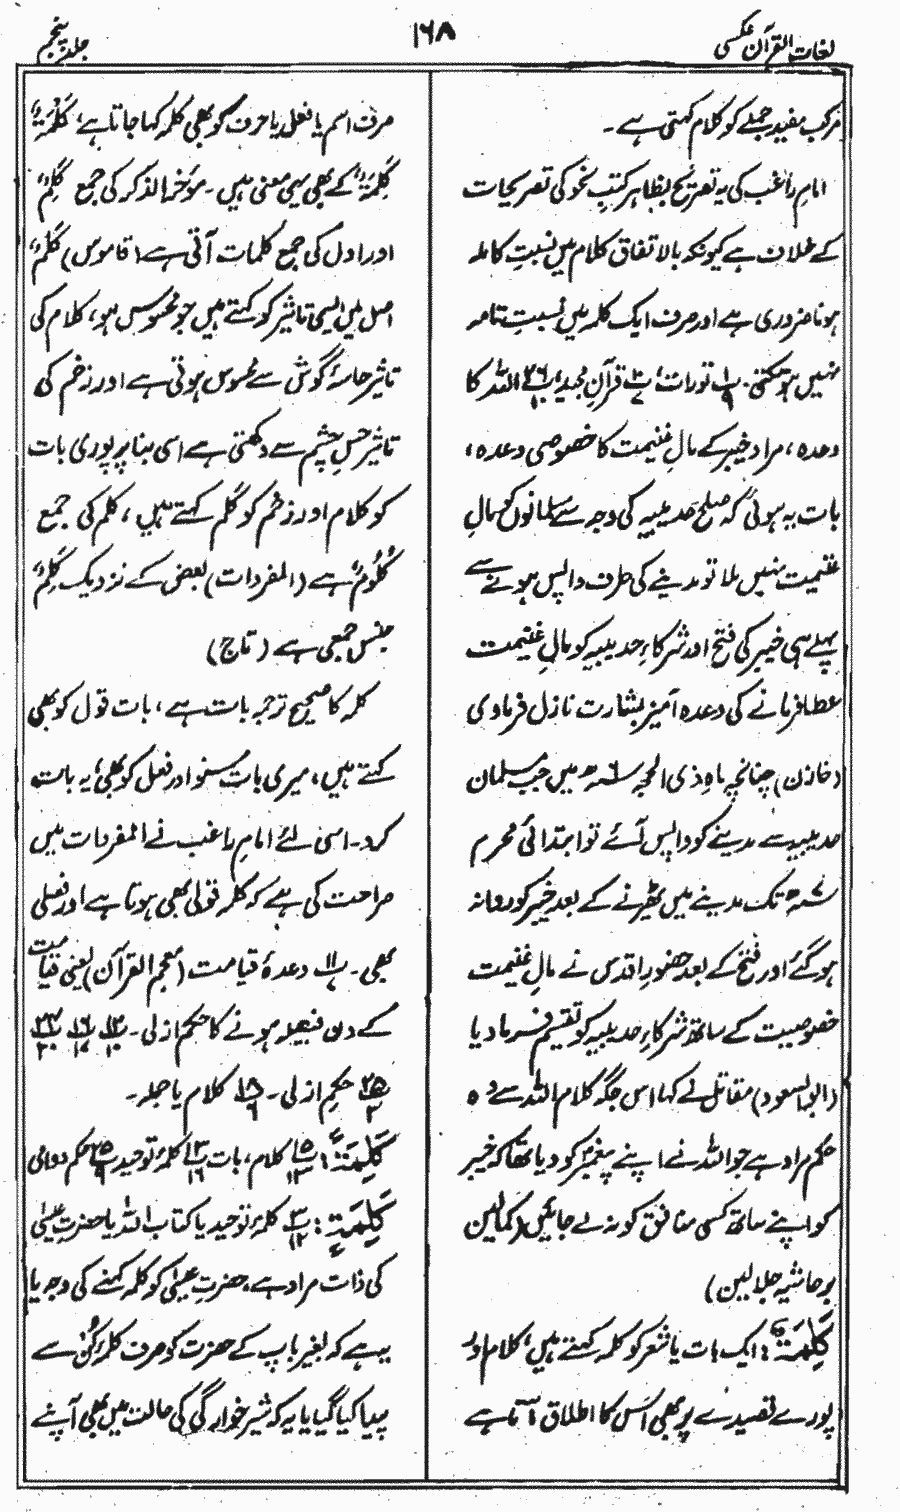 لغات القرآن عکسی
۱۶۸
جلد پنجم
مرکب مفید جملے کو کلام کہتی ہے۔
امام راغب کی یہ تصریح بظاہر کتبِ نحو کی تصریحات
کے خلاف ہے کیونکہ بالاتفاق کلام میں نسبتِ کاملہ
ہونا ضروری ہے اور صرف ایک کلمہ میں نسبت تامہ
نہیں ہوسکتی۔ تورات، قرآنِ مجید، اللہ کا
وعدہ، مراد خیبر کے مالِ غنیمت کا خصوصی وعدہ،
بات یہ ہوئی کہ صلح حدیبیہ کی وجہ سے مسلمانوں کو مالِ
غنیمت نہیں ملا تو مدینے کی طرف واپس ہونے سے
پہلے ہی خیبر کی فتح اور شرکاءِ حدیبیہ کو مالِ غنیمت
عطا فرمانے کی وعدہ آمیز بشارت نازل فرمادی
(خازن) چنانچہ ماہِ ذی الحجہ ۶ھ میں جب مسلمان
حدیبیہ سے مدینے کو واپس آئے تو ابتدائی محرم
۷ھ تک مدینے میں ٹھہرنے کے بعد خیبر کو روانہ
ہوگئے اور فتح کے بعد حضورِ اقدس نے مالِ غنیمت
خصوصیت کے ساتھ شرکاءِ حدیبیہ کو تقسیم فرمادیا
(ابوالسعود) مقاتل نے کہا اس جگہ کلام اللہ سے وہ
حکم مراد ہے جو اللہ نے اپنے پیغمبر کو دیا تھا کہ خیبر
کو اپنے ساتھ کسی منافق کو نہ لے جائیں (کمالین
بر حاشیہ جلالین)
كَلِمَةٌ: ایک بات یا شعر کو کلمہ کہتے ہیں، کلام اور
پورے قصیدے پر بھی اس کا اطلاق آتا ہے
صرف اسم یا فعل یا حرف کو بھی کلمہ کہا جاتا ہے، كَلْمَةٌ،
كِلْمَةٌ کے بھی یہی معنی ہیں۔ مؤخر الذکر کی جمع كِلَمٌ
اور اول کی جمع کلمات آتی ہے (قاموس) كَلْمٌ
اصل میں ایسی تاثیر کو کہتے ہیں جو محسوس ہو، کلام کی
تاثیر حاسۂ گوش سے محسوس ہوتی ہے اور زخم کی
تاثیر حسِ چشم سے دکھتی ہے اسی بنا پر پوری بات
کو کلام اور زخم کو کَلْم کہتے ہیں، کلم کی جمع
كُلُومٌ ہے (المفردات) بعض کے نزدیک كَلِمٌ
جنس جمعی ہے (تاج)
کلمہ کا صحیح ترجمہ بات ہے، بات قول کو بھی
کہتے ہیں، میری بات سنو اور فعل کو بھی، یہ بات
کرو۔ اسی لئے امام راغب نے المفردات میں
صراحت کی ہے کہ کلمہ قولی بھی ہوتا ہے اور فعلی
بھی۔ وعدۂ قیامت (معجم القرآن) یعنی قیامت
کے دن فیصلہ ہونے کا حکم ازلی۔
حکمِ ازلی۔ کلام یا جملہ۔
كَلِمَةٌ: کلام، بات کلمۂ توحید حکم دوامی
كَلِمَةٍ: کلمۂ توحید یا کتاب اللہ یا حضرتِ عیسیٰ
کی ذات مراد ہے، حضرتِ عیسیٰ کو کلمہ کہنے کی وجہ یا
یہ ہے کہ بغیر باپ کے حضرت کو صرف کلمۂ کُن سے
پیدا کیا گیا یا یہ کہ شیر خوارگی کی حالت میں بھی آپ نے